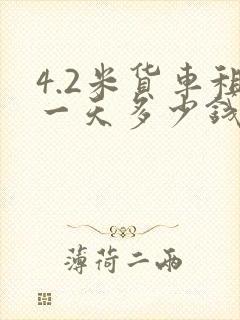 4.2米货車租
一天多少錢
薄荷二兩